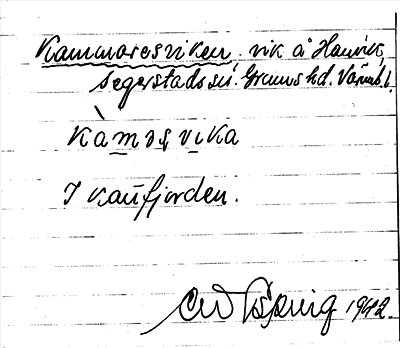 Kammaresviken. vik å Hawick,
Segerstads sn. Grums hd. Värml.
Kàmǝʂ vika
I Kaufjorden.
1942.